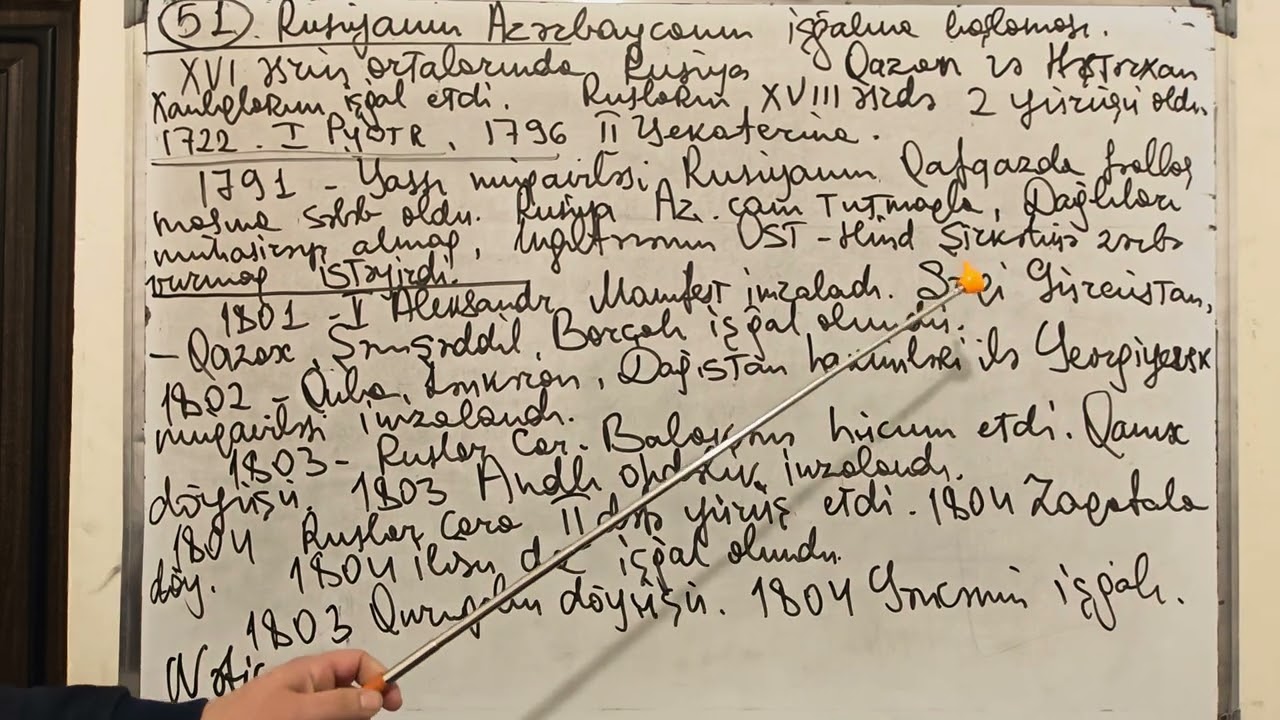 51. Rusiyanın Azərbaycanın işğalına başlaması.
XVI əsrin ortalarında Rusiya Qazan və Həştərxan
xanlıqlarını işğal etdi. Rusların XVIII əsrdə 2 yürüşü oldu.
1722. I PYOTR, 1796 II Yekaterina.
1791 - Yassı müqaviləsi Rusiyanın Qafqazda fəallaş
masına səbəb oldu. Rusiya Az.canı tutmaqla, Dağlıları
mühasirəyə almaq, İngiltərənin OST-Hind Şirkətinə zərbə
vurmaq istəyirdi.
1801 - I Aleksandr Manifest imzaladı. Gürcüstan,
- Qazax, Şəmşəddil, Borçalı işğal olundu.
1802 - Quba, Lənkəran, Dağıstan hakimləri ilə Georgiyevsk
müqaviləsi imzalandı.
1803 - Ruslar Car-Balakənə hücum etdi. Qanıx
döyüşü. 1803 Andlı öhdəlik imzalandı.
1804 Ruslar Cara II dəfə yürüş etdi. 1804 Zaqatala
döy. 1804 ilisu da işğal olundu.
1803 döyüşü. 1804 Gəncənin işğalı.